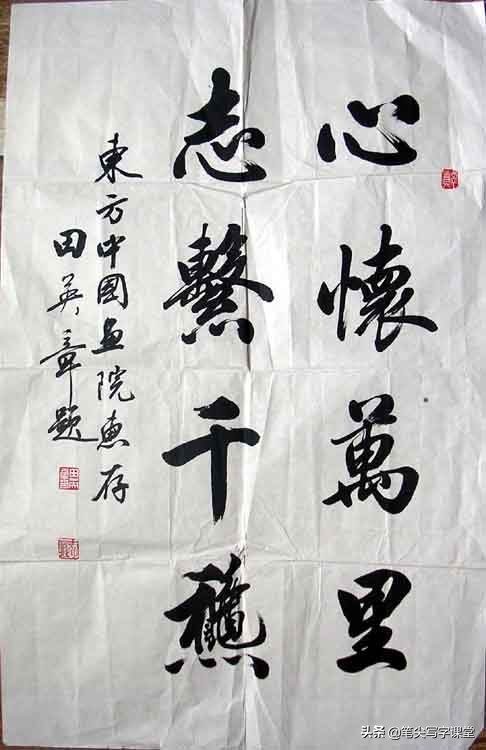 心懷萬里
志繫千龝
東方中國畫院惠存
田英章題
头条 @笔尖写字课堂